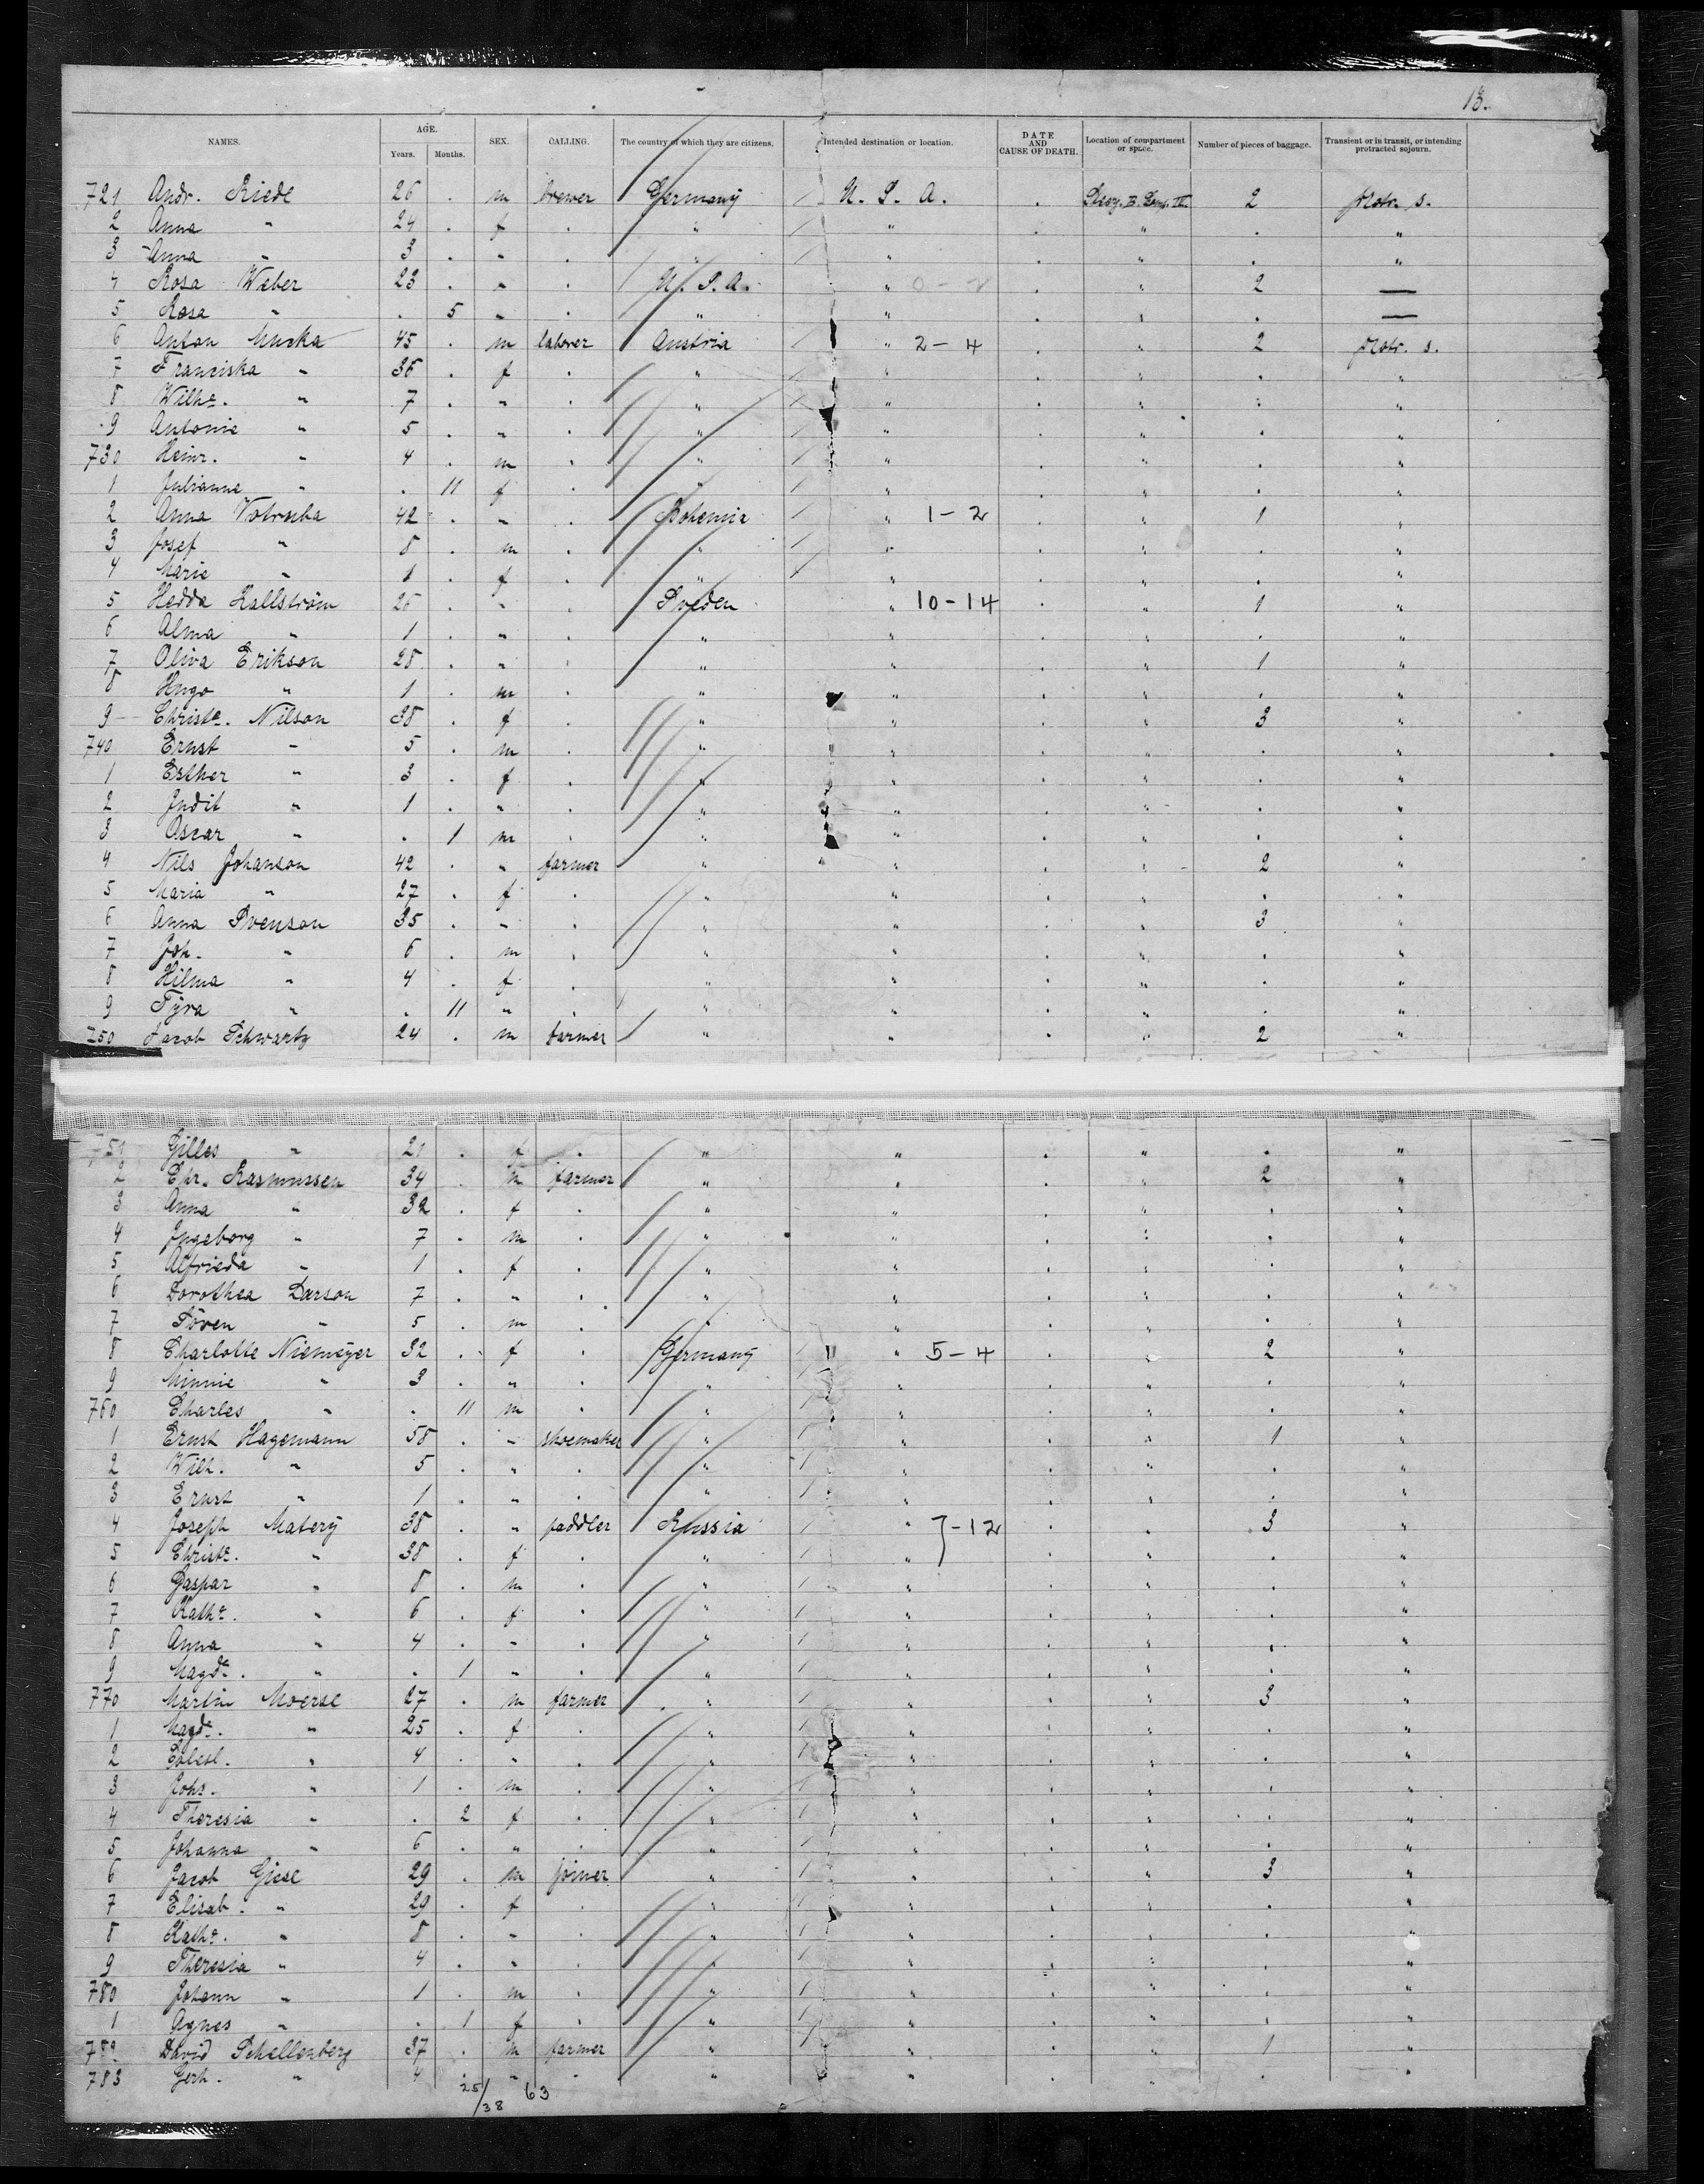 13.
NAMES. AGE. Years. Months. SEX. CALLING. The country of which they are citizens. Intended destination or location. DATE AND CAUSE OF DEATH. Location of compartment or space. Number of pieces of baggage. Transient or in transit, or intending protracted sojourn.
721 Andr. Riedl 26 . m brewer Germany U. S. A. . 2 protr. s.
2 Anna " 24 . f . " " . " . "
3 Anna " 3 . " . " " . " . "
4 Rosa Weber 23 . " . U. S. A. " . " 2 —
5 Rosa " . 5 " . " " . " . —
6 Anton Mucka 45 . m laborer Austria " 2-4 . " 2 protr. s.
7 Franciska " 36 . f . " " . " . "
8 Wilhe. " 7 . " . " " . " . "
9 Antonie " 5 . " . " " . " . "
730 Heinr. " 4 . m . " " . " . "
1 Julianna " . 11 f . " " . " . "
2 Anna Votruba 42 . " . Bohemia " 1-2 . " 1 "
3 Josef " 8 . m . " " . " . "
4 Marie " 1 . f . " " . " . "
5 Hedda Hallström 26 . " . Sveden " 10-14 . " 1 "
6 Alma " 1 . " . " " . " . "
7 Oliva Erikson 28 . " . " " . " 1 "
8 Hugo " 1 . m . " " . " . "
9 Christe. Nilson 38 . f . " " . " 3 "
740 Ernst " 5 . m . " " . " . "
1 Esther " 3 . f . " " . " . "
2 Judit " 1 . " . " " . " . "
3 Oscar " . 1 m . " " . " . "
4 Nils Johanson 42 . " farmer " " . " 2 "
5 Maria " 27 . f . " " . " . "
6 Anna Svenson 35 . " . " " . " 3 "
7 Joh. " 6 . m . " " . " . "
8 Hilma " 4 . f . " " . " . "
9 Tyra " . 11 " . " " . " . "
750 Jacob Schwartz 24 . m farmer " " . " 2 "
751 Gilles " 21 . f . " " . " . "
2 Chr. Rasmussen 34 . m farmer " " . " 2 "
3 Anna " 32 . f . " " . " . "
4 Ingeborg " 7 . m . " " . " . "
5 Alfrieda " 1 . f . " " . " . "
6 Dorothea Larson 7 . " . " " . " . "
7 Sören " 5 . m . " " . " . "
8 Charlotte Niemeyer 32 . f . Germany " 5-4 . " 2 "
9 Minnie " 3 . " . " " . " . "
760 Charles " . 11 m . " " . " . "
1 Ernst Hagemann 58 . " shoemaker " " . " 1 "
2 Wilh. " 5 . " . " " . " . "
3 Ernst " 1 . " . " " . " . "
4 Joseph Matery 38 . " paddler Russia " 7-12 . " 3 "
5 Christe. " 38 . f . " " . " . "
6 Gaspar " 8 . m . " " . " . "
7 Kathe. " 6 . f . " " . " . "
8 Anna " 4 . " . " " . " . "
9 Magde. " . 1 " . " " . " . "
770 Martin Moerse 27 . m farmer " " . " 3 "
1 Magde. " 25 . f . " " . " . "
2 " 4 . " . " " . " . "
3 Johs. " 1 . m . " " . " . "
4 Theresia " . 2 f . " " . " . "
5 Johanna " 6 . " . " " . " . "
6 Jacob Giese 29 . m joiner " " . " 3 "
7 Elisab. " 29 . f . " " . " . "
8 Kathe. " 8 . " . " " . " . "
9 Theresia " 4 . " . " " . " . "
780 Johann " 1 . m . " " . " . "
1 Agnes " . 1 f . " " . " . "
782 David Schellenberg 37 . m farmer " " . " 1 "
783 Gerh. " 4 . " . " " . " . "
25/38 63